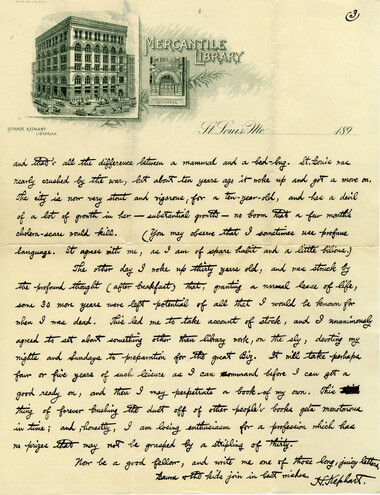 3
MERCANTILE
LIBRARY
HORACE KEPHART,
LIBRARIAN.
St. Louis, Mo. 189
and that's all the difference between a mammal and a bed-bug. St. Louis was
nearly crushed by the war, but about ten years ago it woke up and got a move on.
The city is now very stout and vigorous, for a ten-year-old, and has a devil
of a lot of growth in her — substantial growth — no boom that a few months
cholera-scare would kill. (You may observe that I sometimes use profane
language. It agrees with me, as I am of spare habit and a little bilious.)
The other day I woke up thirty years old, and was struck by
the profound thought (after breakfast) that, granting a normal lease of life,
some 30 more years were left potential of all that I would be known for
when I was dead. This led me to take account of stock, and I unanimously
agreed to set about something other than library work, on the sly, devoting my
nights and Sundays to preparation for the great Biz. It will take perhaps
four or five years of such leisure as I can command before I can get a
good ready on, and then I may perpetrate a book of my own. This
thing of forever brushing the dust off of other people's books gets monotonous
in time; and, honestly, I am losing enthusiasm for a profession which has
no prizes that may not be grasped by a stripling of thirty.
Now be a good fellow, and write me one of those long, juicy letters.
Laura & the kids join in best wishes.
H. Kephart.